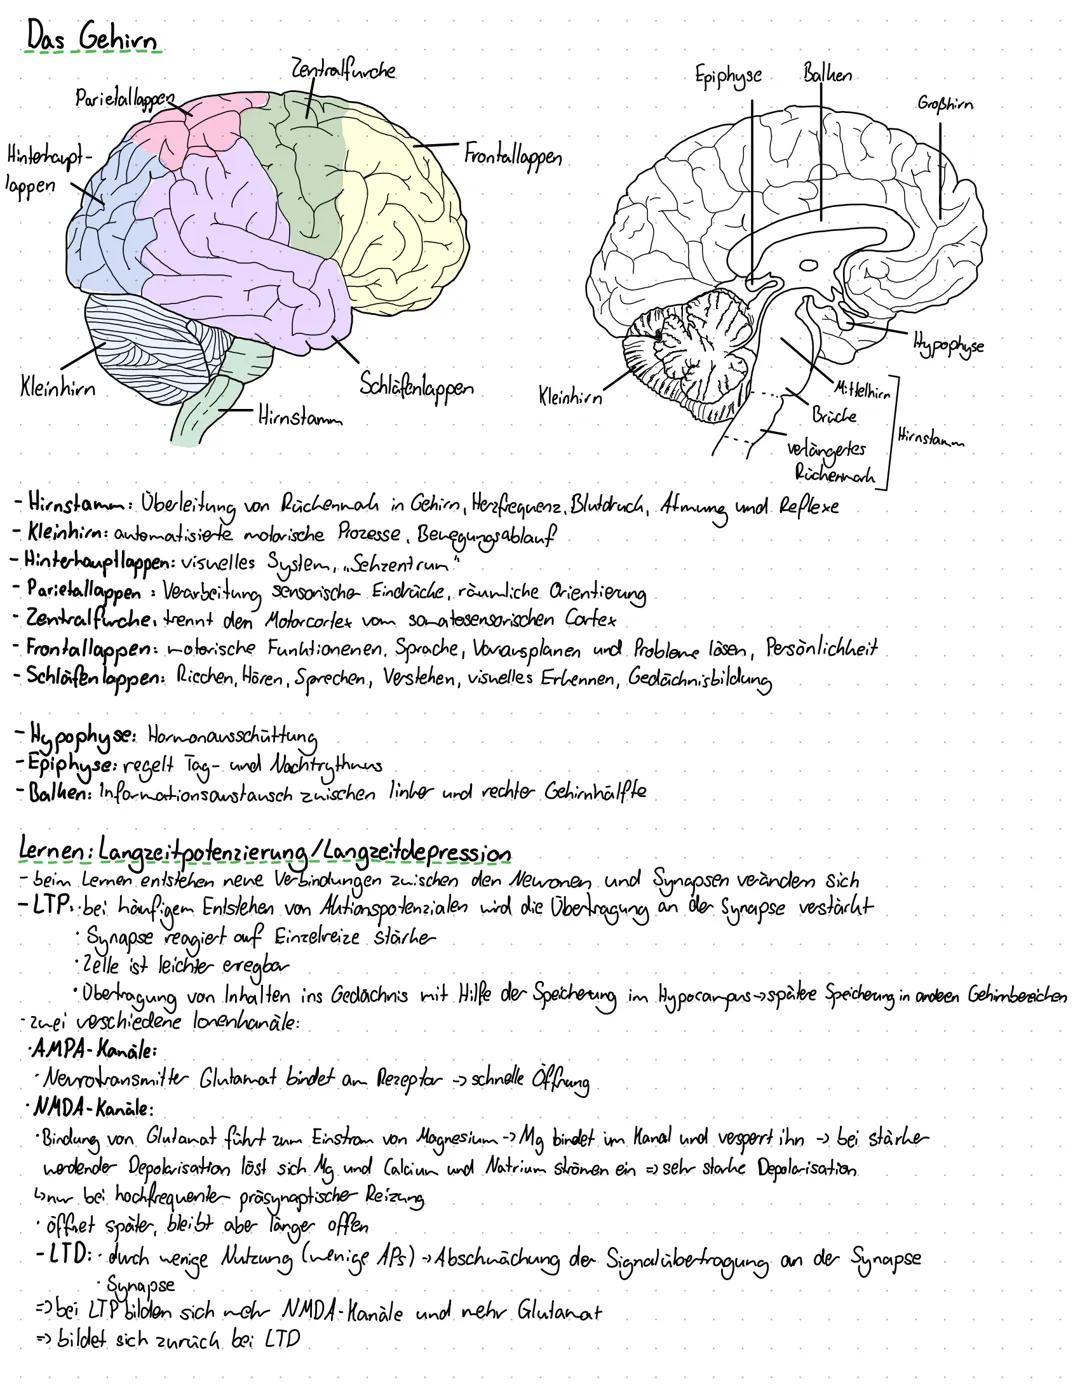 Das Gehirn
Zentralfurche
Parietallappen
Hinterhaupt-
lappen
Frontallappen
Kleinhirn
Schläfenlappen
Hirnstamm
Epiphyse
Balken
Großhirn
Hypophyse
Kleinhirn
Mittelhirn
Brücke
verlängertes
Rückenmark
Hirnstamm
- Hirnstamm: Überleitung von Rückenmak in Gehirn, Herzfrequenz, Blutdruck, Atmung und Reflexe
- Kleinhirn: automatisierte motorische Prozesse, Bewegungsablauf
- Hinterhauptlappen: visuelles System, „Sehzentrum"
- Parietallappen: Verarbeitung sensorischer Eindrücke, räumliche Orientierung
- Zentralfurche: trennt den Motorcortex vom somatosensorischen Cortex
- Frontallappen: motorische Funktionenen, Sprache, Vorausplanen und Probleme lösen, Persönlichkeit
- Schläfenlappen: Riechen, Hören, Sprechen, Verstehen, visuelles Erkennen, Gedächnisbildung
- Hypophyse: Hormonausschüttung
- Epiphyse: regelt Tag- und Nachtrythmus
- Balken: Informationsaustausch zwischen linker und rechter Gehirnhälfte
Lernen: Langzeitpotenzierung/Langzeitdepression
- beim Lernen entstehen neue Verbindungen zwischen den Neuronen und Synapsen verändern sich
- LTP: · bei häufigem Entstehen von Aktionspotenzialen wird die Übertragung an der Synapse verstärkt
· Synapse reagiert auf Einzelreize stärker
· Zelle ist leichter erregbar
· Übertragung von Inhalten ins Gedächnis mit Hilfe der Speicherung im Hypocampus → spätere Speicherung in anderen Gehirnbereichen
- zwei verschiedene Ionenkanäle:
· AMPA-Kanäle:
· Neurotransmitter Glutamat bindet am Rezeptor → schnelle Öffnung
· NMDA-Kanäle:
· Bindung von Glutamat führt zum Einstrom von Magnesium → Mg bindet im Kanal und versperrt ihn → bei stärker
werdender Depolarisation löst sich Mg und Calcium und Natrium strömen ein => sehr starke Depolarisation
↳ nur bei hochfrequenter präsynaptischer Reizung
· öffnet später, bleibt aber länger offen
- LTD: · durch wenige Nutzung (wenige APs) → Abschwächung der Signalübertragung an der Synapse
· Synapse
=> bei LTP bilden sich mehr NMDA-Kanäle und mehr Glutamat
=> bildet sich zurück bei LTD